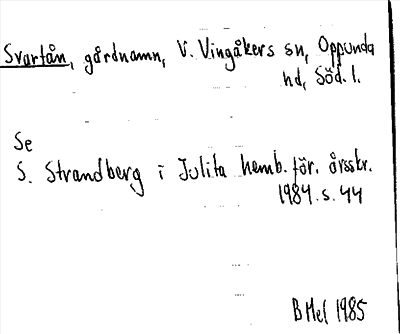 Svartån, gårdnamn, V. Vingåkers sn, Oppunda
hd, Söd. l.
Se
S. Strandberg i Julita hemb. för. årsskr.
1984. s. 44
B Mel 1985